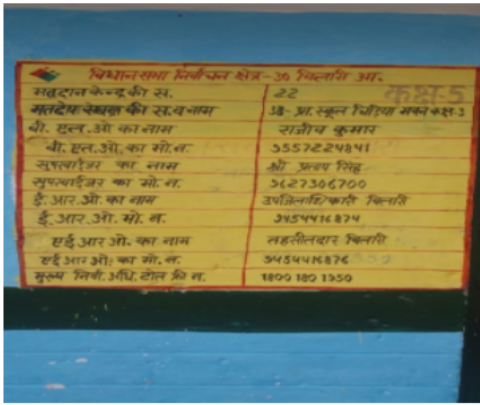 विधानसभा निर्वाचन क्षेत्र-30 बिलारी आ.
मतदान केन्द्र की स. 22 कक्ष-5
मतदेय स्थल की स. व नाम 38- प्रा. स्कूल चिड़िया भवन कक्ष-3
बी. एल. ओ का नाम राजीव कुमार
बी. एल. ओ. का मो. न. 9557224841
सुपरवाईजर का नाम श्री प्रताप सिंह
सुपरवाईजर का मो. न. 9627306700
ई. आर. ओ. का नाम उपजिलाधिकारी बिलारी
ई. आर. ओ. मो. न. 9454416874
एई आर ओ. का नाम तहसीलदार बिलारी
एई आर ओ. का मो. न. 9454416876
मुख्य निर्वा. अधि. टोल फ्री न. 1800 180 1950